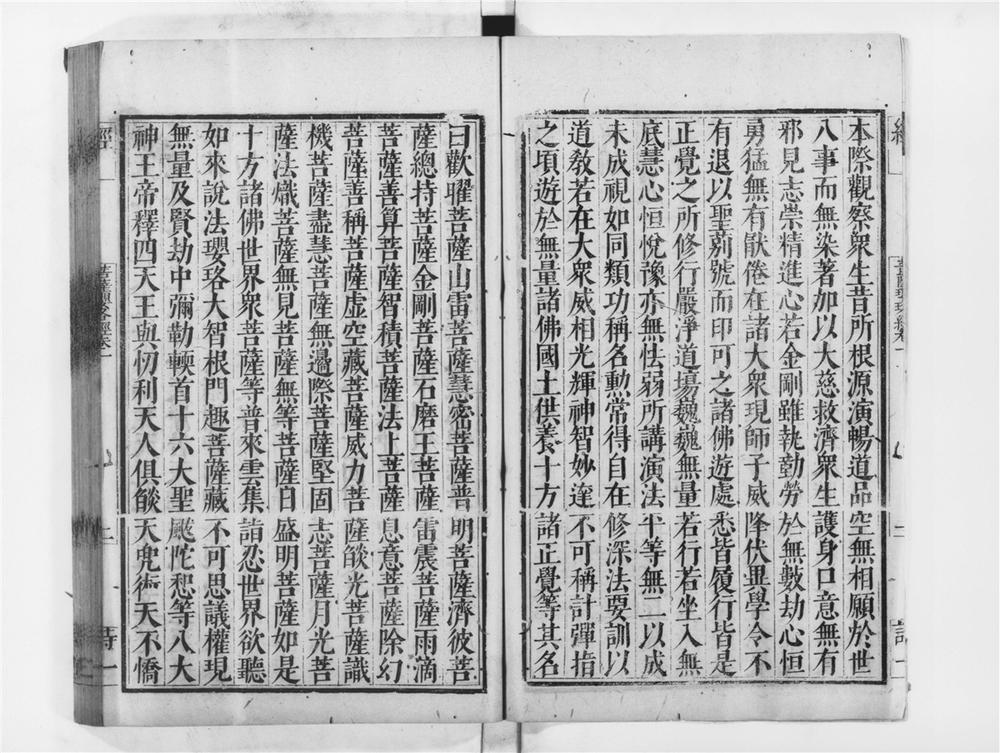 本際觀察衆生昔所根源演暢道品空無相願於世
八事而無染著加以大慈救濟衆生護身口意無有
邪見志崇精進心若金剛雖執勤勞於無數劫心恒
勇猛無有猒倦在諸大衆現師子威降伏異學令不
有退以聖萠號而印可之諸佛遊處悉皆履行皆是
正覺之所修行嚴淨道場巍巍無量若行若坐入無
底慧心恒悅豫亦無怯弱所講演法平等無二以成
未成視如同類功稱名勲常得自在修深法要訓以
道教若在大衆威相光輝神智妙達不可稱計彈指
之頃遊於無量諸佛國土供養十方諸正覺等其名
曰歡曜菩薩山雷菩薩慧密菩薩普明菩薩濟彼菩
薩總持菩薩金剛菩薩石磨王菩薩雷震菩薩雨滴
菩薩善算菩薩智積菩薩法上菩薩息意菩薩除幻
菩薩善稱菩薩虛空藏菩薩威力菩薩燄光菩薩識
機菩薩盡慧菩薩無邊際菩薩堅固志菩薩月光菩
薩法熾菩薩無見菩薩無等菩薩日盛明菩薩如是
十方諸佛世界衆菩薩等普來雲集詣忍世界欲聽
如來說法瓔珞大智根門趣菩薩藏不可思議權現
無量及賢劫中彌勒輭首十六大聖颰陀惒等八大
神王帝釋四天王與忉利天人俱燄天兜術天不憍
經
菩薩瓔珞經卷一